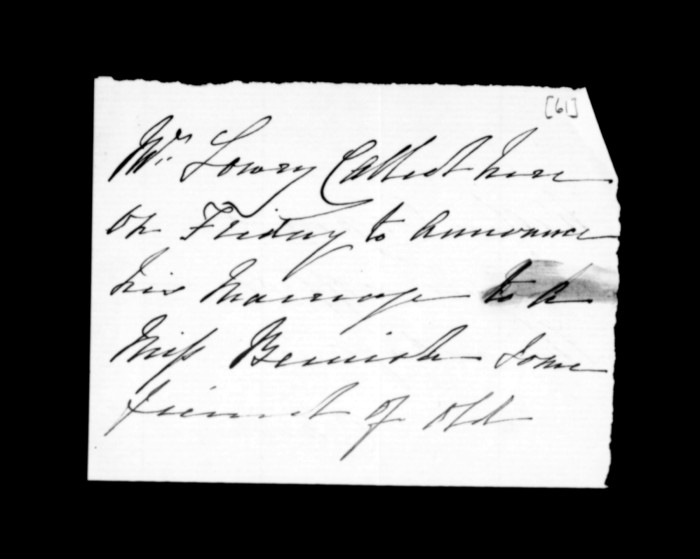 [61]
Mr. Lowry Called here
on Friday to announce
his Marriage to a
Miss
friend of old